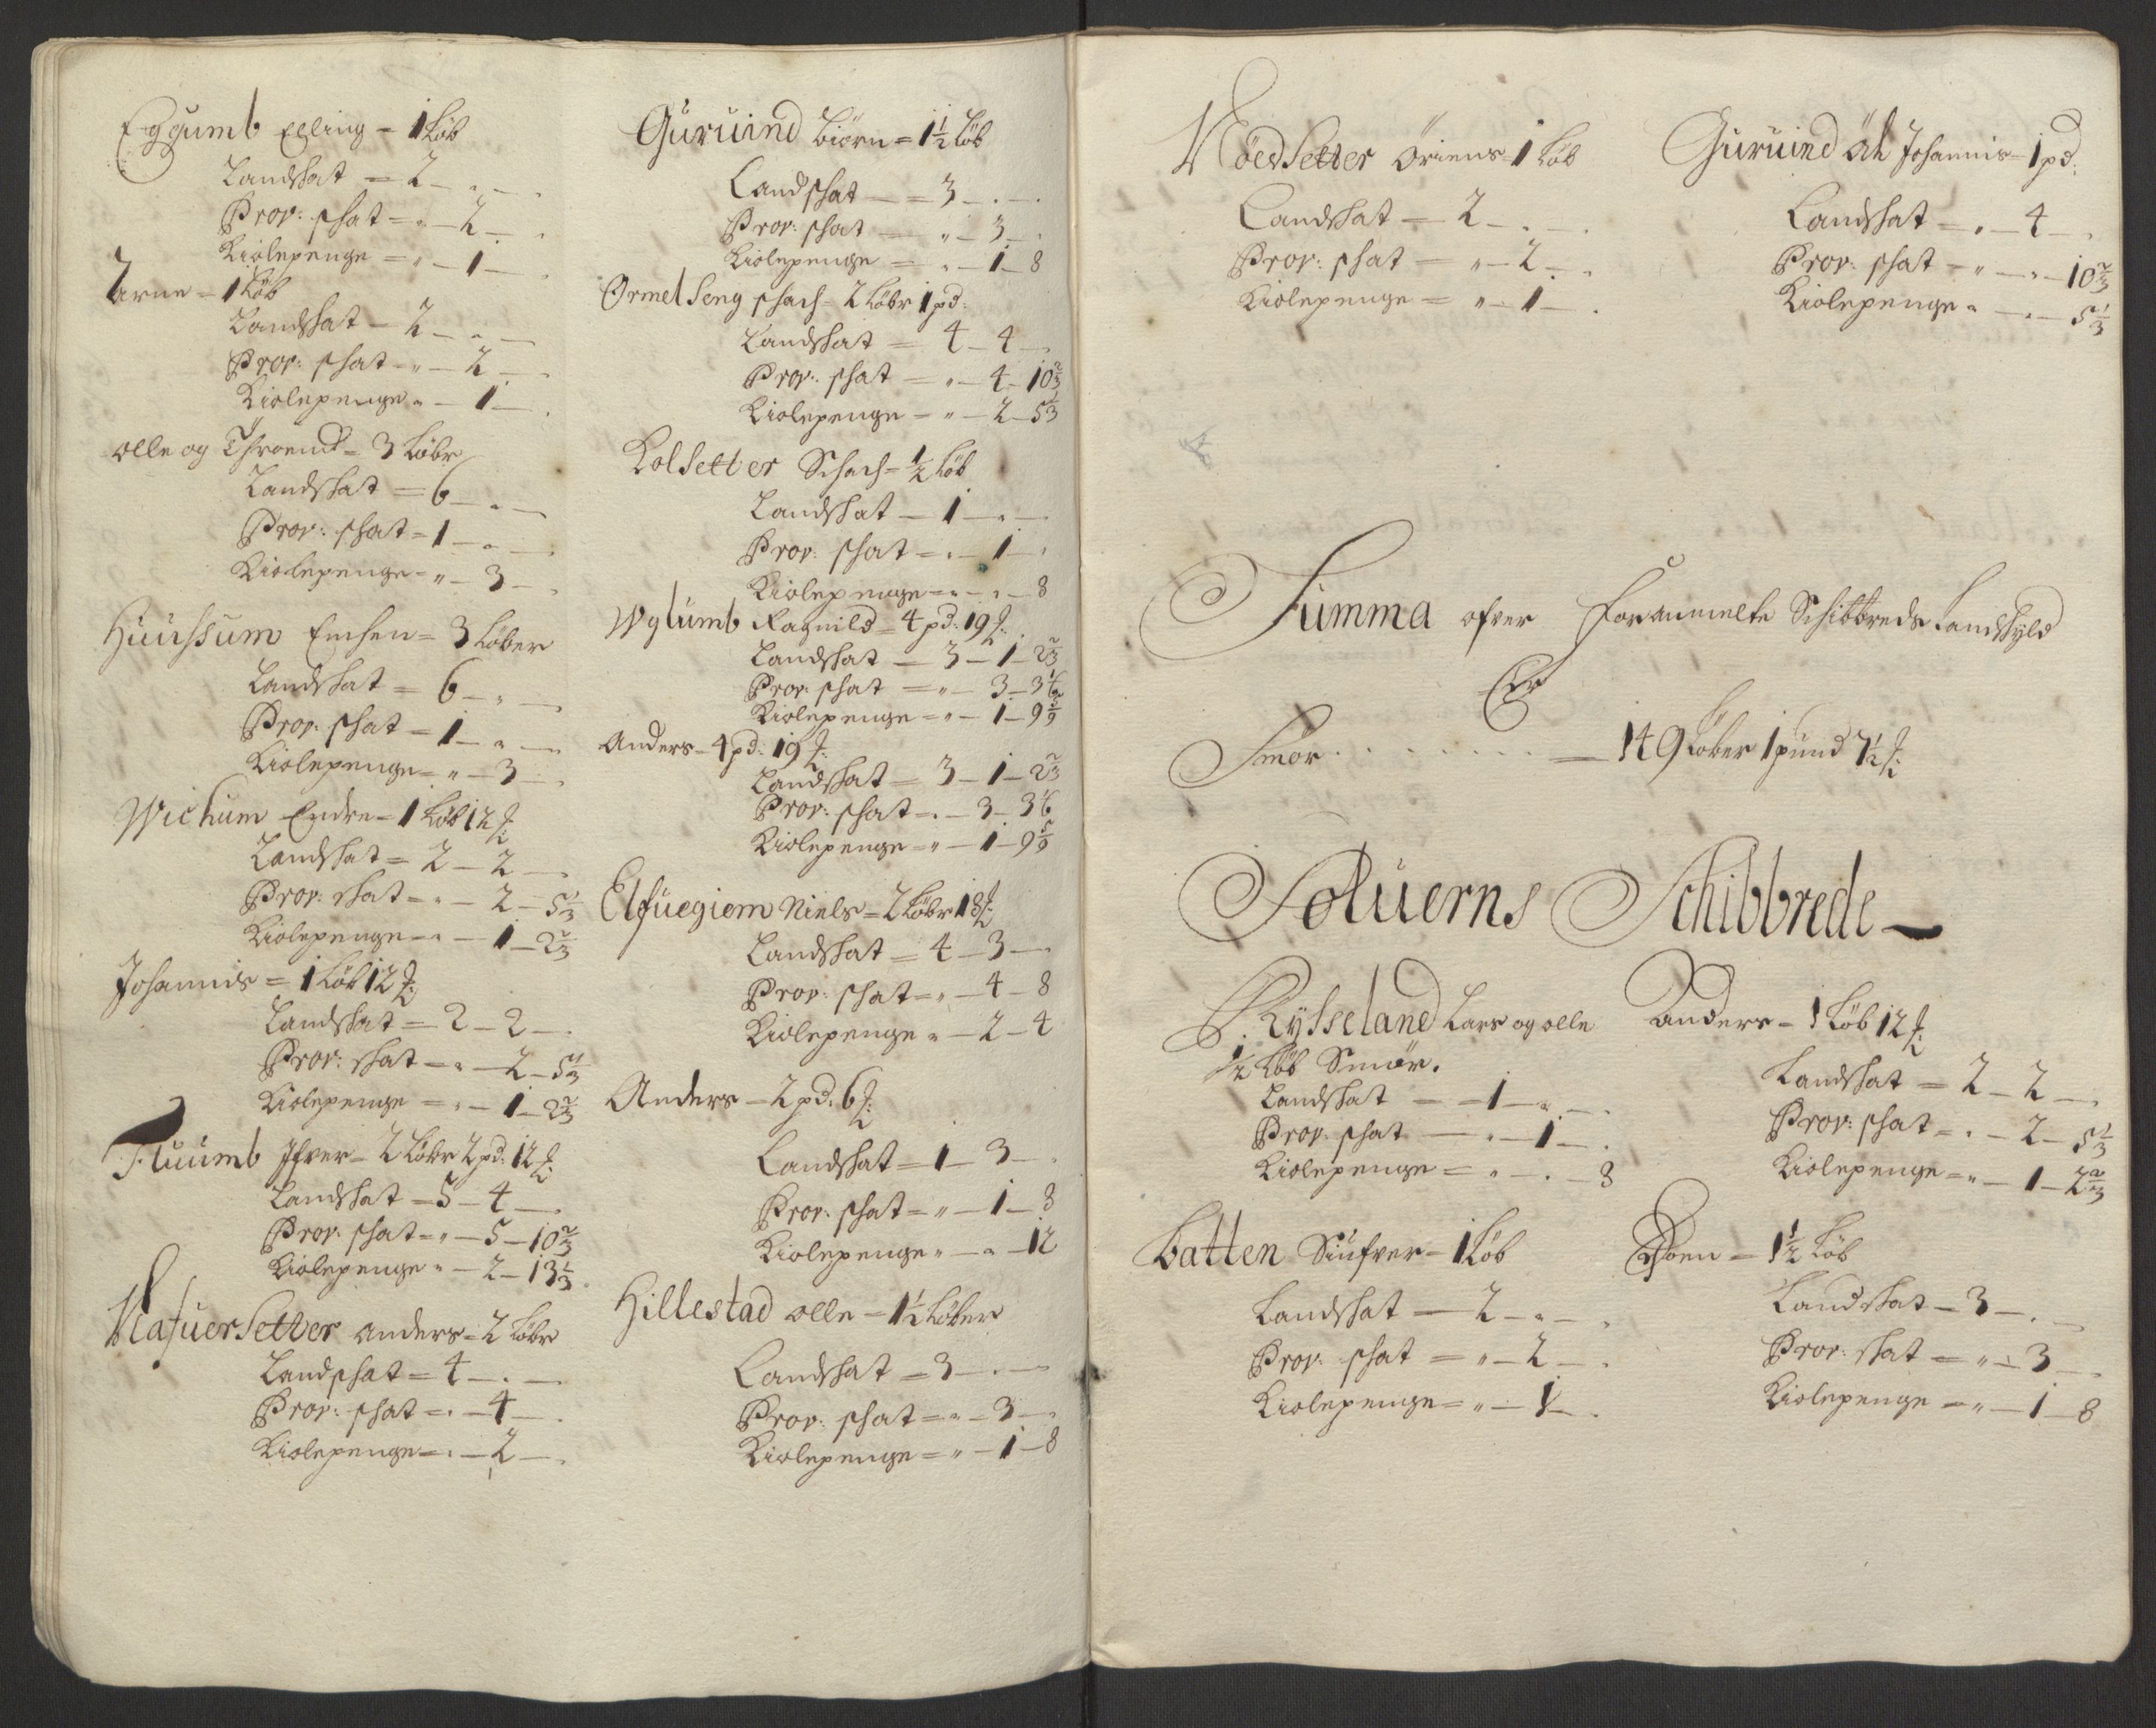 Eggumb Elling = 1 Løb
Landskat = 2 - " -
Prov: skat = " - 2 -
Kiolepenge = " - 1 -
Arne = 1 Løb
Landskat = 2 - " -
Prov: skat = " - 2 -
Kiolepenge " - 1 -
olle og Throend = 3 Løbr
Landskat = 6 - " -
Prov: skat = 1 - " -
Kiolepenge = " - 3 -
Huussum = 3 Løber
Landskat = 6 - " -
Prov: skat = 1 - " -
Kiolepenge = " - 3 -
Wichum Endre = 1 Løb 12 ℔
Landskat = 2 - 2 -
Prov: skat = " - 2 - 5 1/3
Kiolepenge = " - 1 - 2 2/3
Johannis = 1 Løb 12 ℔
Landskat = 2 - 2 -
Prov: skat = " - 2 - 5 1/3
Kiolepenge = " - 1 - 2 2/3
Tuumb Ifver = 2 Løbr 2 pd: 12 ℔
Landskat = 5 - 4 -
Prov: skat = " - 5 - 10 2/3
Kiolepenge " - 2 - 13 1/3
Nafuersetter anders = 2 Løbr
Landskat = 4 - " -
Prov: skat = " - 4 -
Kiolepenge = " - 2 -
Guruind biørn = 1 1/2 Løb
Landskat = 3 - " -
Prov: skat = " - 3 -
Kiolepenge = " - 1 - 8
Ormetseng schach = 2 Løbr 1 pd:
Landskat = 4 - 4 -
Prov: skat = " - 4 - 10 2/3
Kiolepenge = " - 2 - 5 1/3
Kolsetter Schach = 1/2 Løb
Landskat = 1 - " -
Prov: skat = " - 1 -
Kiolepenge = " - " - 8
Wglumb Ragnild = 4 pd: 19 ℔
Landskat = 3 - 1 - 2 2/3
Prov: skat = " - 3 - 3 1/6
Kiolepenge = " - 1 - 9 5/9
Anders = 4 pd: 19 ℔
Landskat = 3 - 1 - 2 2/3
Prov: skat = " - 3 - 3 1/6
Kiolepenge = " - 1 - 9 5/9
Elfuegiem Niels = 2 Løbr 18 ℔
Landskat = 4 - 3 -
Prov: skat = " - 4 - 8
Kiolepenge " - 2 - 4
Anders = 2 pd. 6 ℔
Landskat = 1 - 3 -
Prov: skat = " - 1 - 8
Kiolepenge " - " - 12
Hillestad olle = 1 1/2 Løber
Landskat = 3 - " -
Prov: skat = " - 3 -
Kiolepenge = " - 1 - 8
Nöedsetter Öriens = 1 Løb
Landskat = 2 - " -
Prov: skat = " - 2 -
Kiolepenge = " - 1 -
Guruind Johannis = 1 pd:
Landskat = " - 4 -
Prov: skat = " - " - 10 2/3
Kiolepenge " - " - 5 1/3
Summa ofver Foranmelte Schibbreds Landskyld
Er
Smør . . . . . . . . = 149 Løber 1 pund 7 1/2 ℔
Soluerns Schibbrede
Rysseland Lars og olle
1/2 Løb Smør.
Landskat = 1 - " -
Prov: skat = " - 1 -
Kiolepenge = " - " - 8
batten Siufver = 1 Løb
Landskat = 2 - " -
Prov: skat = " - 2 -
Kiolepenge = " - 1 -
Anders = 1 Løb 12 ℔
Landskat = 2 - 2 -
Prov: skat = " - 2 - 5 1/3
Kiolepenge = " - 1 - 2 2/3
= 1 1/2 Løb
Landskat = 3 - " -
Prov: skat = " - 3 -
Kiolepenge = " - 1 - 8